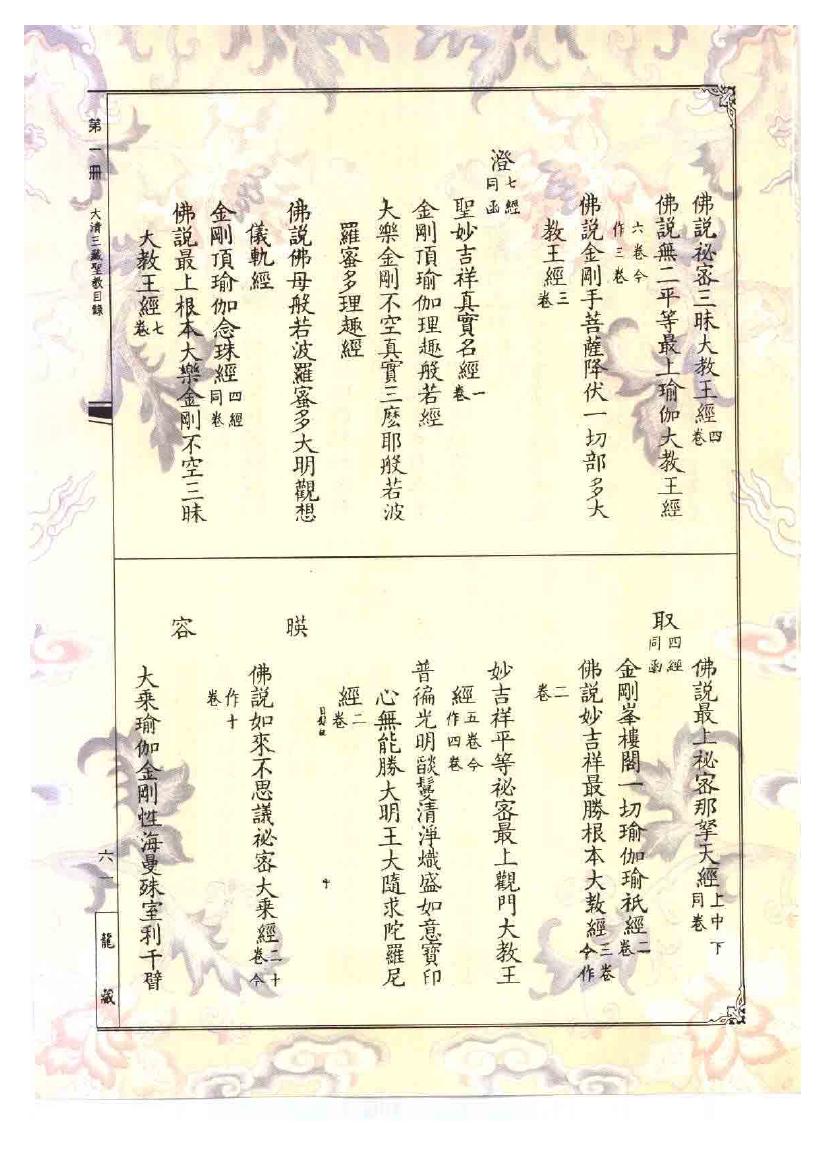 佛說祕密三昧大教王經四卷
佛說無二平等最上瑜伽大教王經
六卷今作三卷
佛說金剛手菩薩降伏一切部多大
教王經三卷
澄七經同函
聖妙吉祥真實名經一卷
金剛頂瑜伽理趣般若經
大樂金剛不空真實三麽耶般若波
羅蜜多理趣經
佛說佛母般若波羅蜜多大明觀想
儀軌經
金剛頂瑜伽念珠經四經同卷
佛說最上根本大樂金剛不空三昧
大教王經七卷
佛說最上祕密那拏天經上中下同卷
取四經同函
金剛峯樓閣一切瑜伽瑜祇經二卷
佛說妙吉祥最勝根本大教經三卷今作
二卷
妙吉祥平等祕密最上觀門大教王
經五卷今作四卷
普徧光明燄鬘清淨熾盛如意寶印
心無能勝大明王大隨求陀羅尼
經二卷
暎
佛說如來不思議祕密大乘經二十卷今
作十卷
容
大乘瑜伽金剛性海曼殊室利千臂
第一冊
大清三藏聖教目錄
六一
龍藏